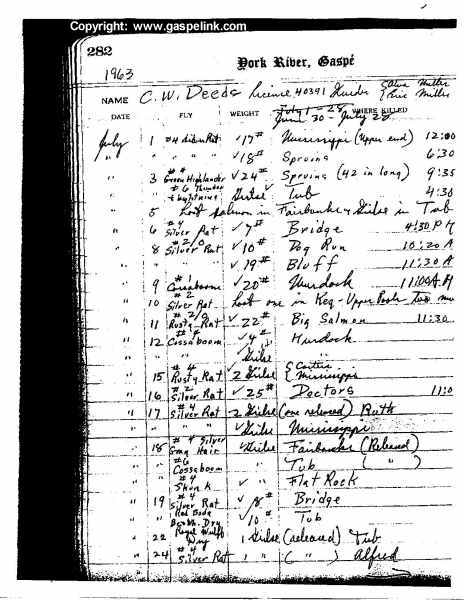 Copyright: www.gaspelink.com
282
York River, Gaspé
1963
NAME C. W. Deeds License 40391 Guides { Alvin Miller
Eric Miller
July 1 - 28
June 30 - July 28
DATE FLY WEIGHT WHERE KILLED
July 1 #4 Silver Rat ✓17# Mississippi (upper end) 12:00
" " " " ✓18# Spruins 6:30
" 3 #4 Green Highlander ✓24# Spruins (42 in long) 9:35
" #6 Thunder & Lightning Grilse Tub 4:30
" 5 Lost Salmon in Fairbanks & Grilse in Tub
" 6 #4 Silver Rat ✓7# Bridge 4:30 PM
" 8 #2/0 Silver Rat ✓10# Dog Run 10:20 A
" ✓19# Bluff 11:30 A
" 9 #1 Cosseboom ✓20# Murdock 11:00 A.M
" 10 #2 Silver Rat Lost one in Keg - Upper Pools
" 11 #2/0 Rusty Rat ✓22# Big Salmon 11:30
" 12 #4 Cossaboom ✓4# Murdock
" ✓Grilse
" 15 #4 Rusty Rat 2 Grilse { Carter
Mississippi
" 16 #2 Silver Rat ✓25# Doctors 11:0
" 17 #4 Silver Rat 2 Grilse (one released) Ruth
" " ✓Grilse Mississippi
" 18 #4 Silver Gray Hair ✓Grilse Fairbanks (Released)
" #6 Cossaboom " Tub ( " )
" #4 Skunk ✓ " Flat Rock
" 19 #4 Silver Rat ✓8# Bridge
" Red Body Dry ✓10# Tub
" 22 Royal Wulff Dry 1 Grilse (released) Tub
" 24 #4 Silver Rat 1 " ( " ) Alfred